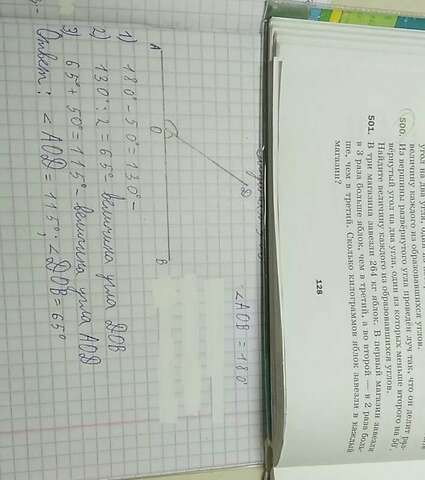 A
O
D
B
∠AOB = 180°
1) 180° - 50° = 130° -
2) 130° : 2 = 65° - величина угла DOB
3) 65° + 50° = 115° - величина угла AOD
Ответ: ∠AOD = 115°; ∠DOB = 65°
угол на два угла, один из
величину каждого из образовавшихся углов.
500. Из вершины развёрнутого угла проведён луч так, что он делит раз-
вёрнутый угол на два угла, один из которых меньше второго на 50°.
Найдите величину каждого из образовавшихся углов.
501. В три магазина завезли 264 кг яблок. В первый магазин завезли
в 3 раза больше яблок, чем в третий, а во второй — в 2 раза боль-
ше, чем в третий. Сколько килограммов яблок завезли в каждый
магазин?
128